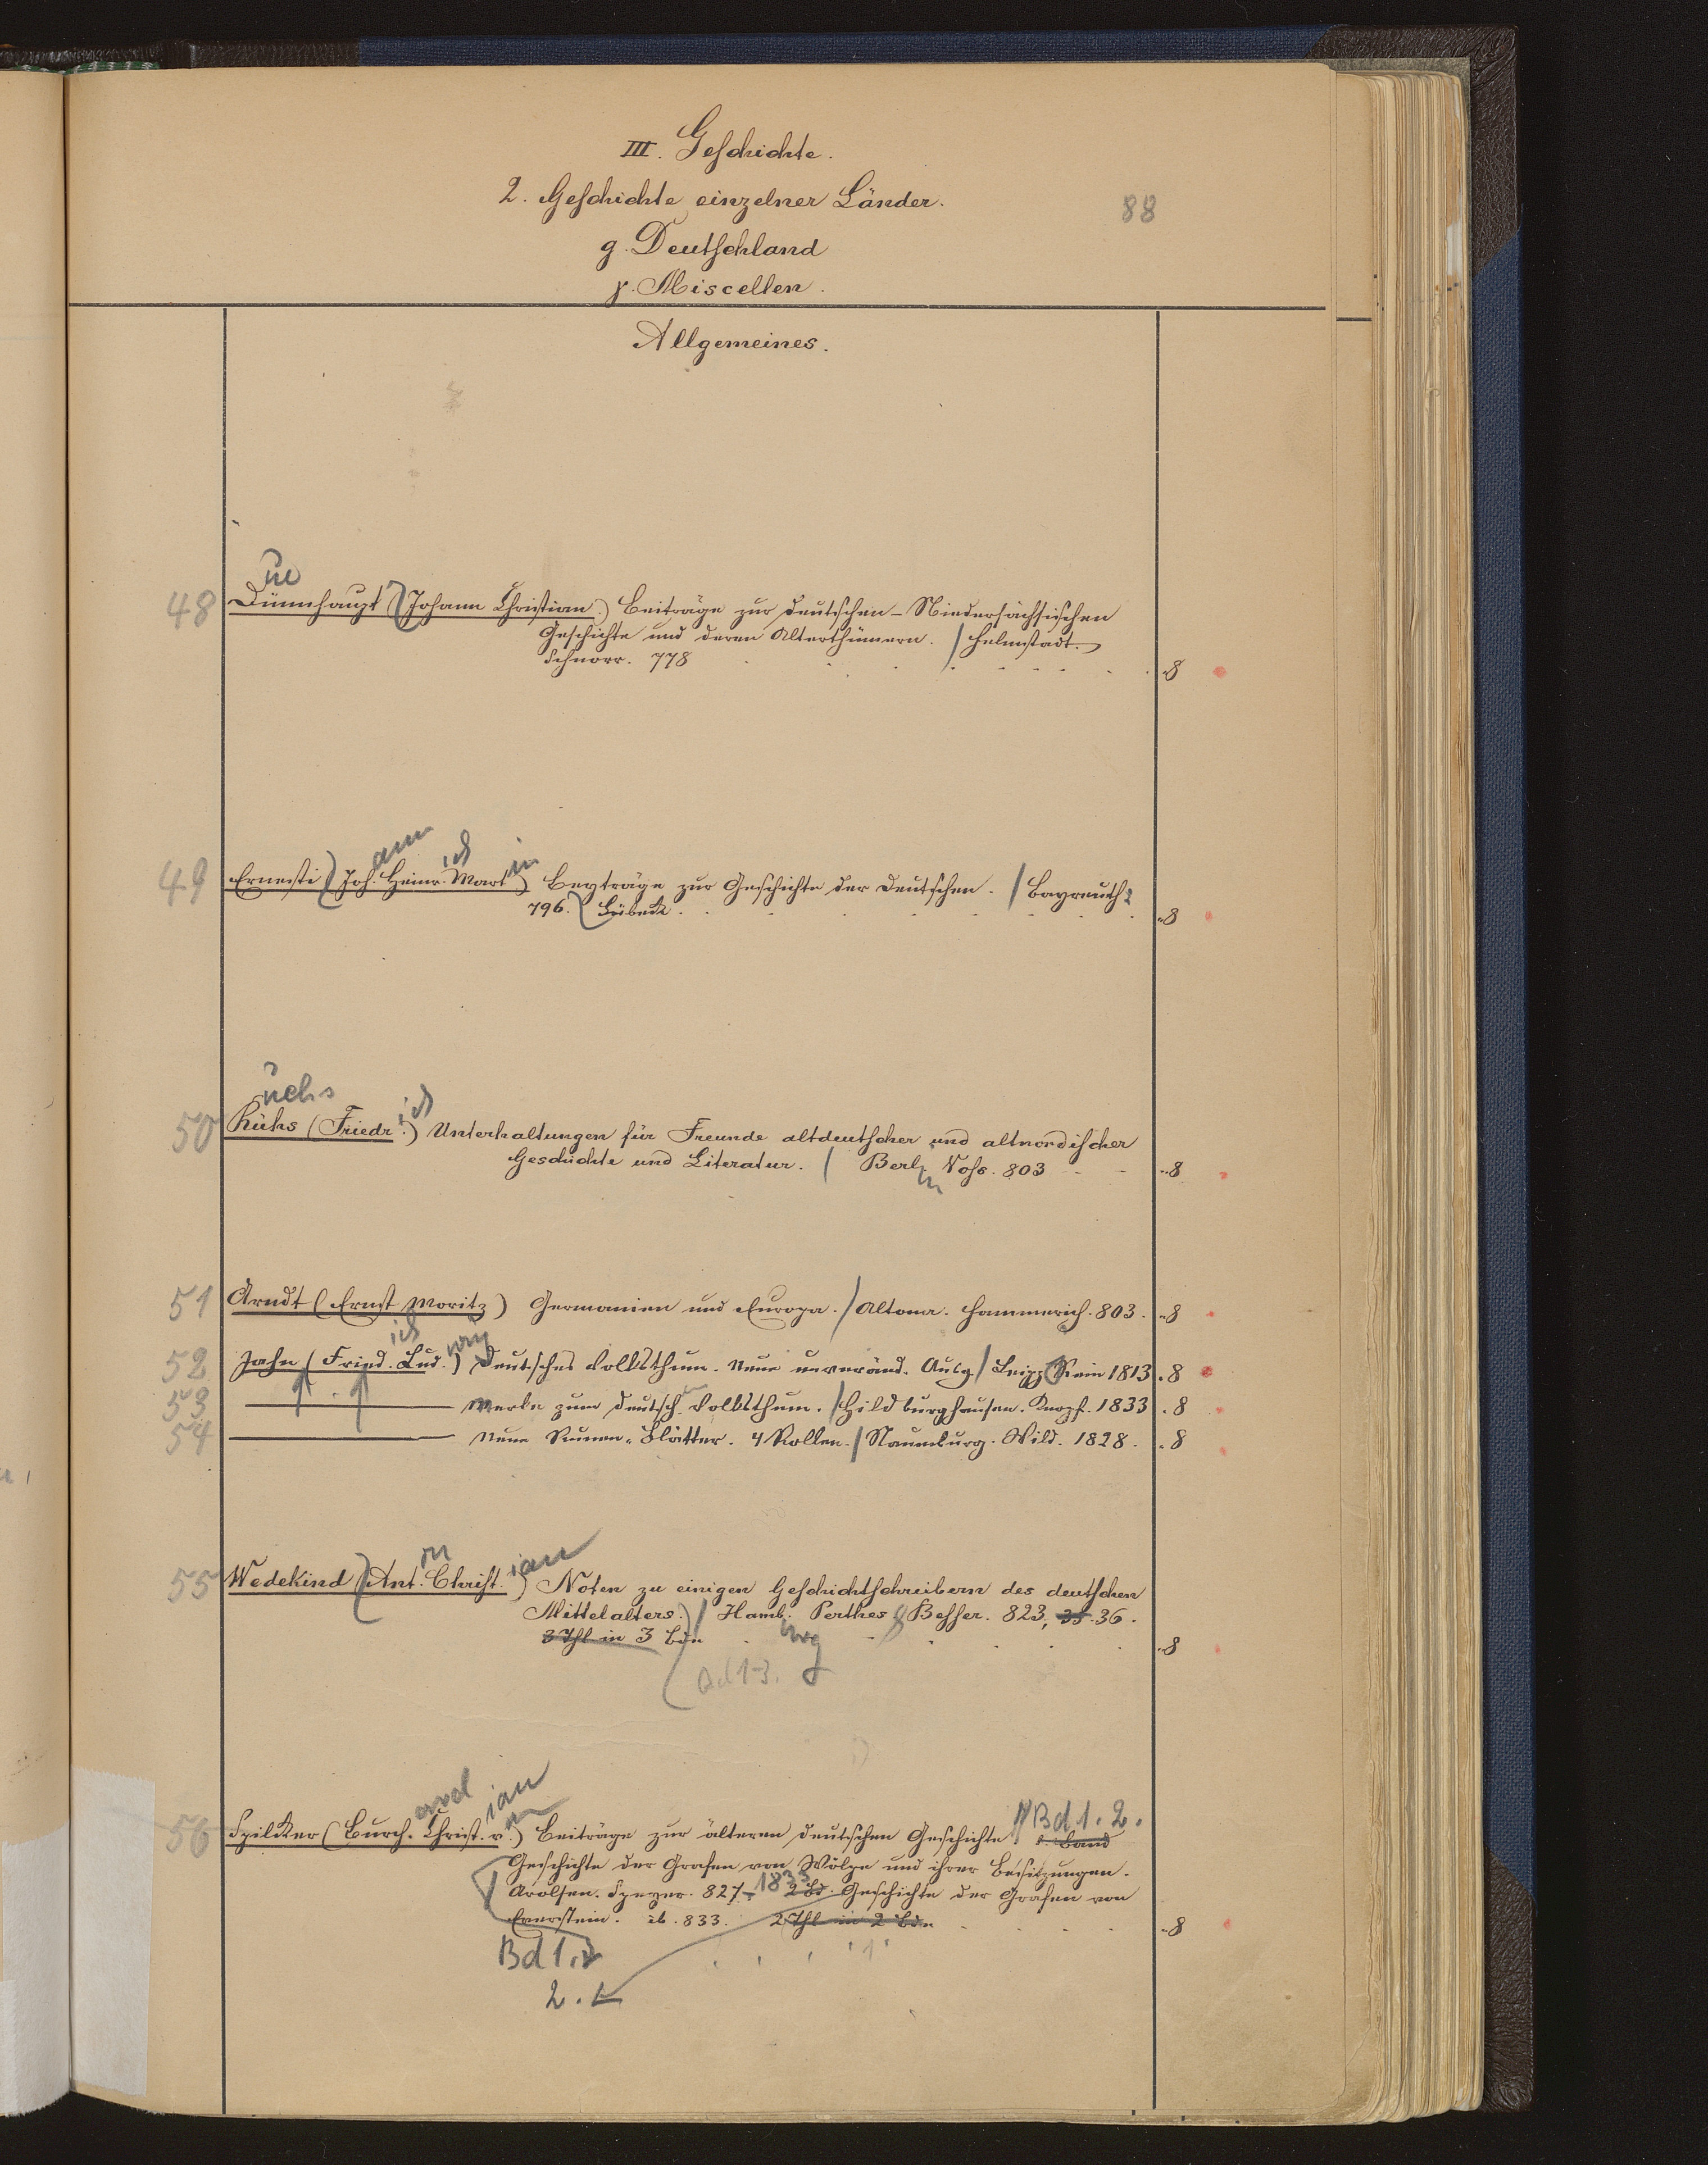 III. Geschichte.
2. Geschichte einzelner Länder.
88
g. Deutschland
γ. Miscellen.
Allgemeines.
ü
48 Dünnhaupt (Johann Christian.) Beiträge zur deutschen-Niedersächsischen
Geschichte und deren Alterthümern. / Helmstadt.
Schnorr. 778 8
ann ich in
49 Ernesti (Joh. Heinr. Mart.) Beyträge zur Geschichte der Deutschen. / Bayreuth
796. Lübeck. 8
üchs ich
50 Rühs (Friedr.) Unterhaltungen für Freunde altdeutscher und altnordischer
Geschichte und Literatur. / Berl. Voss. 803 8
in
51 Arndt (Ernst Moritz) Germanien und Europa. / Altona. Hammerich. 803. 8
ich wig
52 Jahn (Fried. Lud.) Deutsches Volksthum. Neue unveränd. Ausg / Leipz. Rein 1813. 8
53 Merke zum deutsch. Volksthum. / Hildburghausen. Knopf. 1833. 8
54 Neue Runen-Blätter. 4 Rollen. / Naumburg. Wild. 1828. 8
on ian
55 Wedekind (Ant. Christ.) Noten zu einigen Geschichtschreibern des deutschen
Mittelalters. / Hamb. Perthes & Besser. 823, 35. 36.
3 Thl in 3 Bdn 8
urg
Bd 1-3.
ard ian on Bd 1. 2.
56 Spilcker (Burch. Christ. v.) Beiträge zur älteren deutschen Geschichte 1. Band
Geschichte der Grafen von Wölpe und ihrer Besitzungen.
Arolsen. Speyer. 827. -1833 2 Bd. Geschichte der Grafen von
Everstein. ib. 833. 2 Thl in 2 Bdn 8
Bd 1.
2.